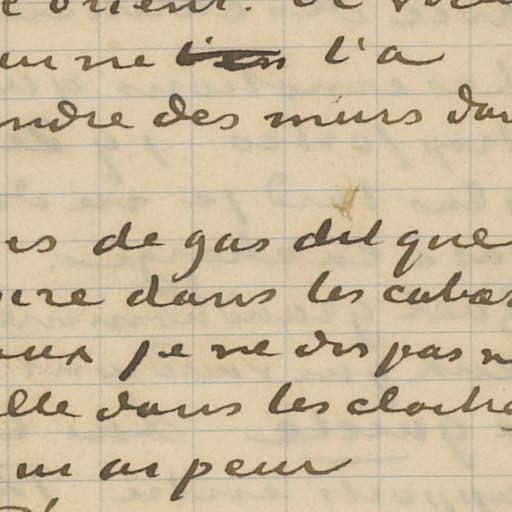 orient.
ne l'a
ndre des murs dan
rs de gas dit que
ère dans les cabas
aux je ne dis pas
elle dans les cloches
m as peur